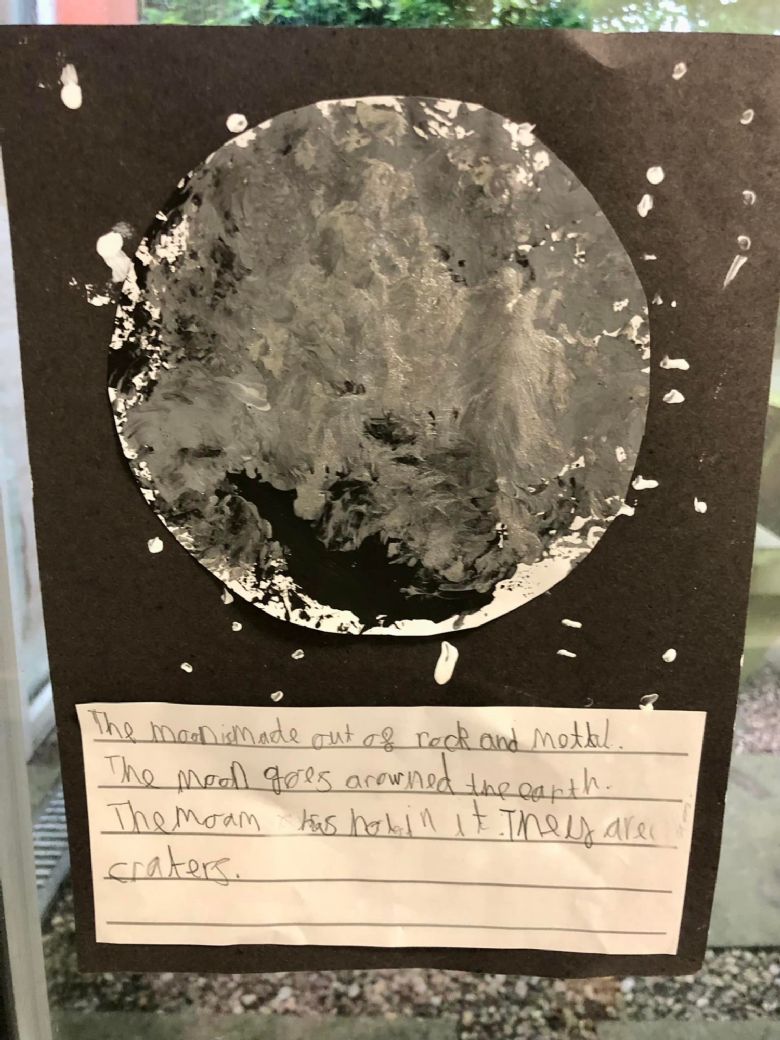 The moon is made out of rock and mettal.
The moon goes arowned the earth.
The moam has hol in it. They are
craters.